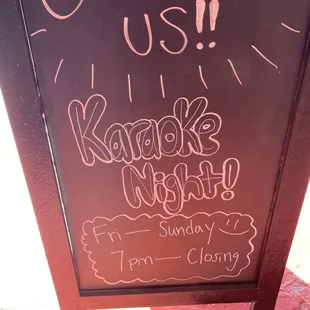 US!!
Karaoke
Night!
Fri — Sunday
7pm — Closing